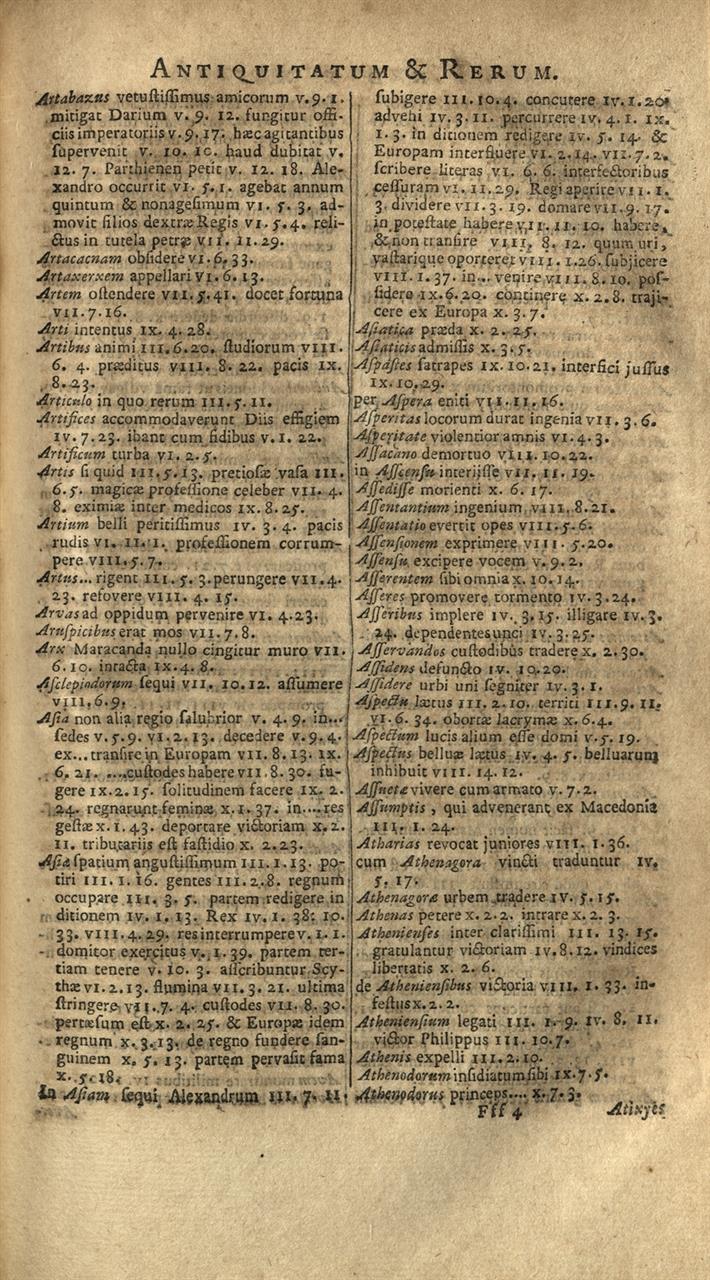 ANTIQUITATUM & RERUM.
Artabazus vetustissimus amicorum V. 9. 1.
mitigat Darium V. 9. 12. fungitur offi-
ciis imperatoriis V. 9. 17. hæc agitantibus
supervenit V. 10. 10. haud dubitat V.
12. 7. Parthienen petit V. 12. 18. Ale-
xandro occurrit VI. 5. 1. agebat annum
quintum & nonagesimum VI. 5. 3. ad-
movit filios dextræ Regis VI. 5. 4. reli-
ctus in tutela petræ VII. 11. 29.
Artacacnam obsidere VI. 6. 33.
Artaxerxem appellari VI. 6. 13.
Artem ostendere VII. 5. 41. docet fortuna
VII. 7. 16.
Arti intentus IX. 4. 28.
Artibus animi III. 6. 20. studiorum VIII.
6. 4. præditus VIII. 8. 22. pacis IX.
8. 23.
Articulo in quo rerum III. 5. 11.
Artifices accommodaverunt Diis effigiem
IV. 7. 23. ibant cum fidibus V. 1. 22.
Artificum turba VI. 2. 5.
Artis si quid III. 5. 13. pretiosæ vasa III.
6. 5. magicæ professione celeber VII. 4.
8. eximiæ inter medicos IX. 8. 25.
Artium belli peritissimus IV. 3. 4. pacis
rudis VI. 11. 1. professionem corrum-
pere VIII. 5. 7.
Artus... rigent III. 5. 3. perungere VII. 4.
23. refovere VIII. 4. 15.
Arvas ad oppidum pervenire VI. 4. 23.
Aruspicibus erat mos VII. 7. 8.
Arx Maracanda nullo cingitur muro VII.
6. 10. intacta IX. 4. 8.
Asclepiodorum sequi VII. 10. 12. assumere
VIII. 6. 9.
Asia non alia regio salubrior V. 4. 9. in...
sedes V. 5. 9. VI. 2. 13. decedere V. 9. 4.
ex... transire in Europam VII. 8. 13. IX.
6. 21. ....custodes habere VII. 8. 30. fu-
gere IX. 2. 15. solitudinem facere IX. 2.
24. regnarunt feminæ X. 1. 37. in....res
gestæ X. 1. 43. deportare victoriam X. 2.
11. tributariis est fastidio X. 2. 23.
Asiæ spatium angustissimum III. 1. 13. po-
tiri III. 1. 16. gentes III. 2. 8. regnum
occupare III. 3. 5. partem redigere in
ditionem IV. 1. 13. Rex IV. 1. 38. 10.
33. VIII. 4. 29. res interrumpere V. 1. 1.
domitor exercitus V. 1. 39. partem ter-
tiam tenere V. 10. 3. asscribuntur Scy-
thæ VI. 2. 13. flumina VII. 3. 21. ultima
stringere VII. 7. 4. custodes VII. 8. 30.
pertæsum est X. 2. 25. & Europæ idem
regnum X. 3. 13. de regno fundere san-
guinem X. 5. 13. partem pervasit fama
X. 5. 18.
In Asiam sequi Alexandrum III. 7. 11.
subigere III. 10. 4. concutere IV. 1. 20.
advehi IV. 3. 11. percurrere IV. 4. 1. IX.
1. 3. in ditionem redigere IV. 5. 14. &
Europam interfluere VI. 2. 14. VII. 7. 2.
scribere literas VI. 6. 6. interfectoribus
cessuram VI. 11. 29. Regi aperire VII. 1.
3. dividere VII. 3. 19. domare VII. 9. 17.
in potestate habere VII. 11. 10. habere,
& non transire VIII. 8. 12. quum uri,
vastarique oporteret VIII. 1. 26. subjicere
VIII. 1. 37. in... venire VIII. 8. 10. pos-
sidere IX. 6. 20. continere X. 2. 8. traji-
cere ex Europa X. 3. 7.
Asiatica præda X. 2. 25.
Asiaticis admissis X. 3. 5.
Aspastes satrapes IX. 10. 21. interfici jussus
IX. 10. 29.
per Aspera eniti VII. 11. 16.
Asperitas locorum durat ingenia VII. 3. 6.
Asperitate violentior amnis VI. 4. 3.
Assacano demortuo VIII. 10. 22.
in Asscensu interiisse VII. 11. 19.
Assedisse morienti X. 6. 17.
Assentantium ingenium VIII. 8. 21.
Assentatio evertit opes VIII. 5. 6.
Assensionem exprimere VIII. 5. 20.
Assensu excipere vocem V. 9. 2.
Asserentem sibi omnia X. 10. 14.
Asseres promovere tormento IV. 3. 24.
Asseribus implere IV. 3. 15. illigare IV. 3.
24. dependentes unci IV. 3. 25.
Asservandos custodibus tradere X. 2. 30.
Assidens defuncto IV. 10. 20.
Assidere urbi uni segniter IV. 3. 1.
Aspectu lætus III. 2. 10. territi III. 9. 11.
VI. 6. 34. obortæ lacrymæ X. 6. 4.
Aspectum lucis alium esse domi V. 5. 19.
Aspectus belluæ lætus IV. 4. 5. belluarum
inhibuit VIII. 14. 12.
Assueta vivere cum armato V. 7. 2.
Assumptis, qui advenerant ex Macedonia
III. 1. 24.
Atharias revocat juniores VIII. 1. 36.
cum Athenagora vincti traduntur IV.
5. 17.
Athenagoræ urbem tradere IV. 5. 15.
Athenas petere X. 2. 2. intrare X. 2. 3.
Athenienses inter clarissimi III. 13. 15.
gratulantur victoriam IV. 8. 12. vindices
libertatis X. 2. 6.
de Atheniensibus victoria VIII. 1. 33. in-
festus X. 2. 2.
Atheniensium legati III. 1. 9. IV. 8. 11.
victor Philippus III. 10. 7.
Athenis expelli III. 2. 10.
Athenodorum insidiatum sibi IX. 7. 5.
Athenodorus princeps.... X. 7. 3.
Fff 4 Atixyes